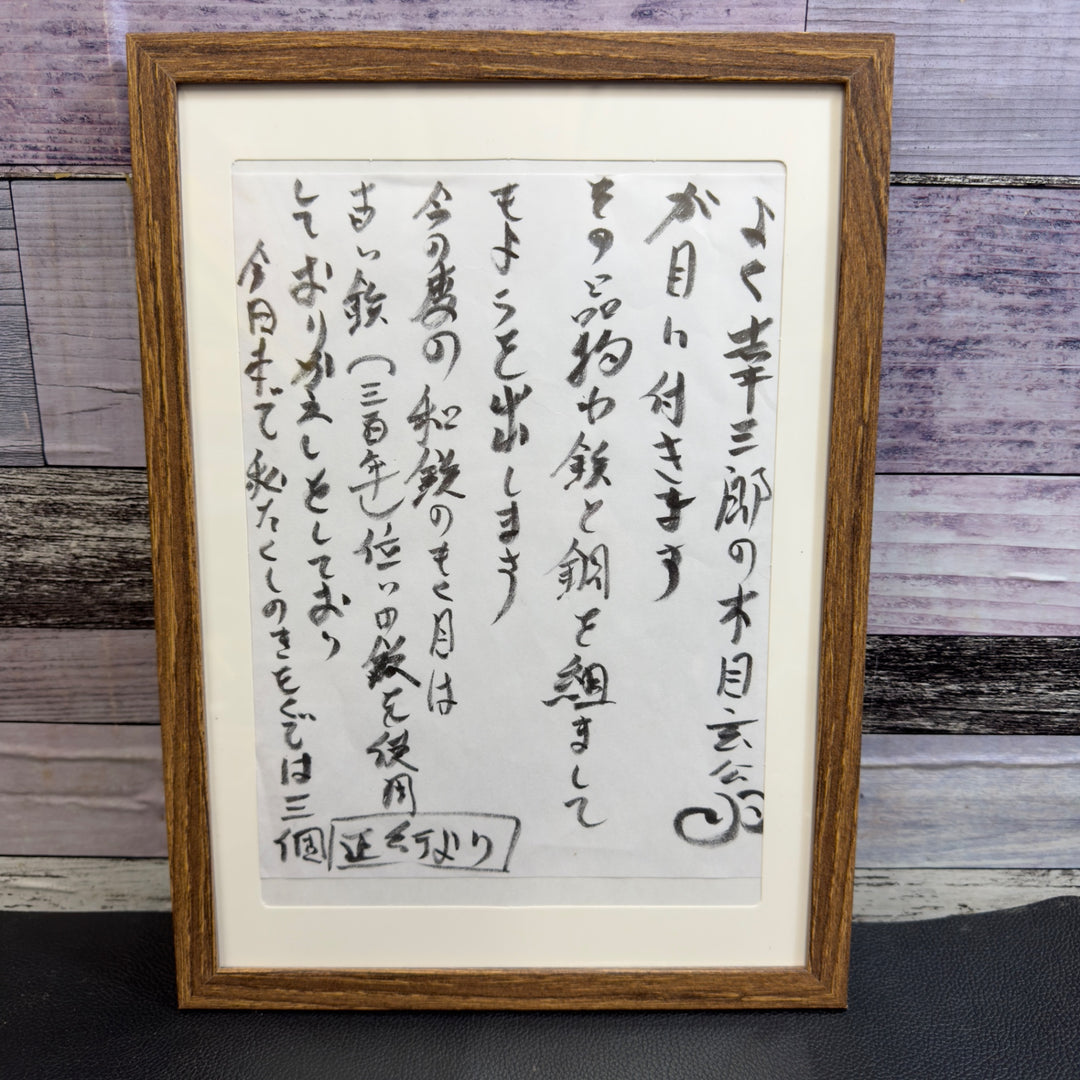 よく幸三郎の木目玄公
が目に付きます
その品物わ鉄と鋼を組まして
もようを出します
今の妻の和鉄のもく目は
古い鉄(三百年)位いの鉄を使用
しておりかえしとしており
今日まで私たくしのきをくでは三個
正行より